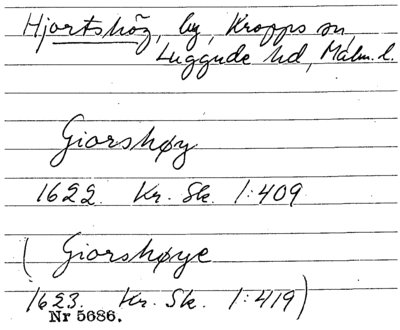 Hjortshög, by, Kropps sn,
Luggude hd, Malm. l.
Giorshøy
1622. Kr. Sk. 1:409
( Giorshøye
1623. Kr. Sk. 1:419)
Nr 5686.